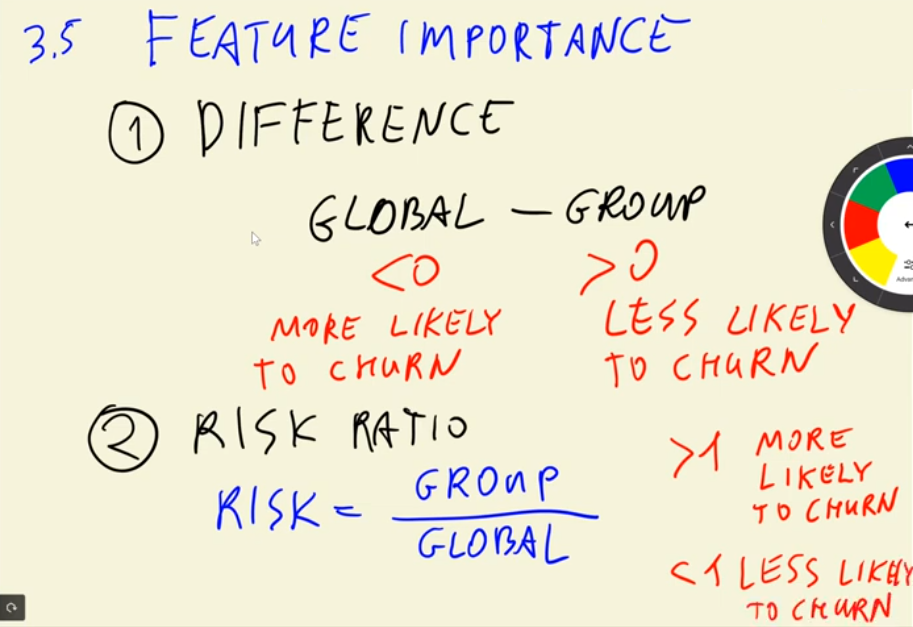 3.5 FEATURE IMPORTANCE
1 DIFFERENCE
GLOBAL – GROUP
<0
MORE LIKELY
TO CHURN
>0
LESS LIKELY
TO CHURN
2 RISK RATIO
RISK = GROUP
GLOBAL
>1 MORE
LIKELY
TO CHURN
<1 LESS LIKELY
TO CHURN
Advan